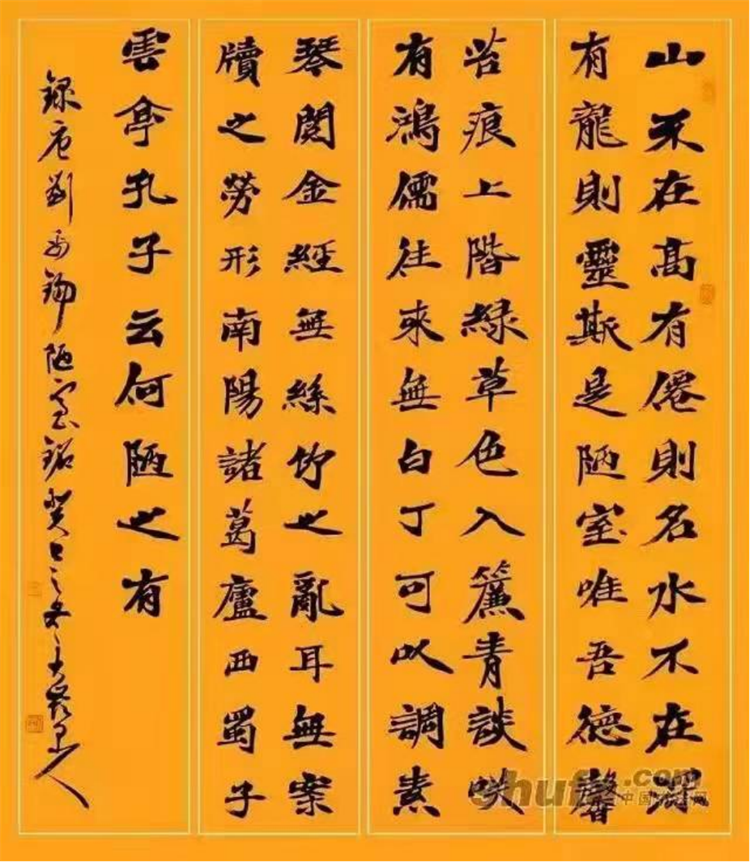 山不在高有僊則名水不在深
有龍則靈斯是陋室唯吾德馨
苔痕上階緑草色入簾青談咲
有鴻儒往來無白丁可以調素
琴閱金經無絲竹之亂耳無案
牘之勞形南陽諸葛廬西蜀子
雲亭孔子云何陋之有
録唐劉禹錫陋室銘癸巳之冬人